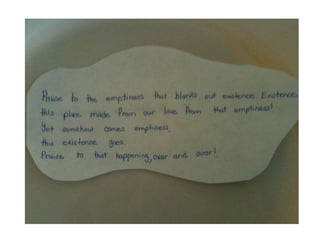 Praise to the emptiness that blanks out existence. Existence:
this place made from our love from that emptiness!
Yet somehow comes emptiness,
this existence goes.
Praise to that happening, over and over!